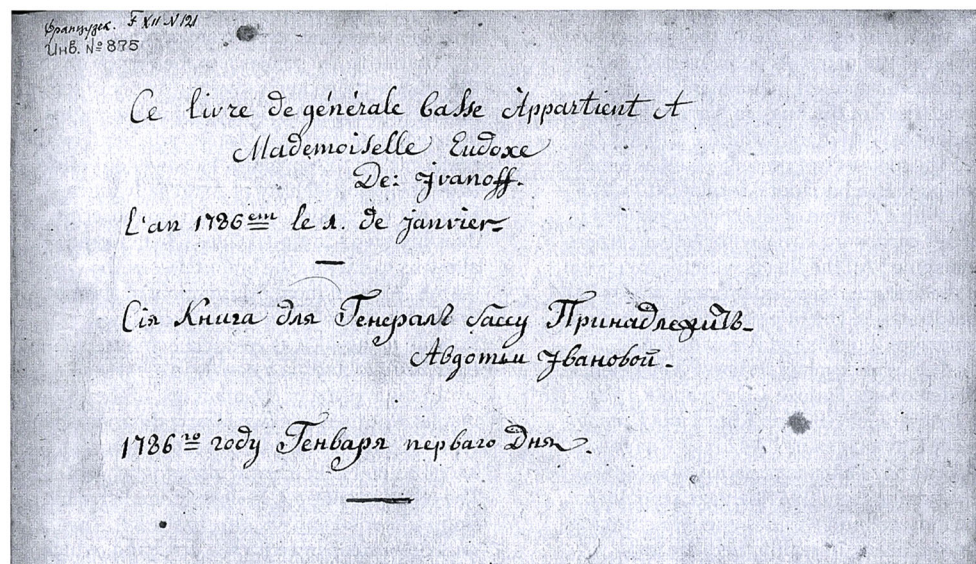 Французск. F XII N 121
Инв. № 875
Ce livre de générale basse Appartient A
Mademoiselle Eudoxe
De: Jvanoff.
L'an 1786em le 1. de janvier.
Сія Книга для Генералъ бассу Принадлежитъ
Авдотьи Јвановой.
1786го году Генваря перваго Дня.